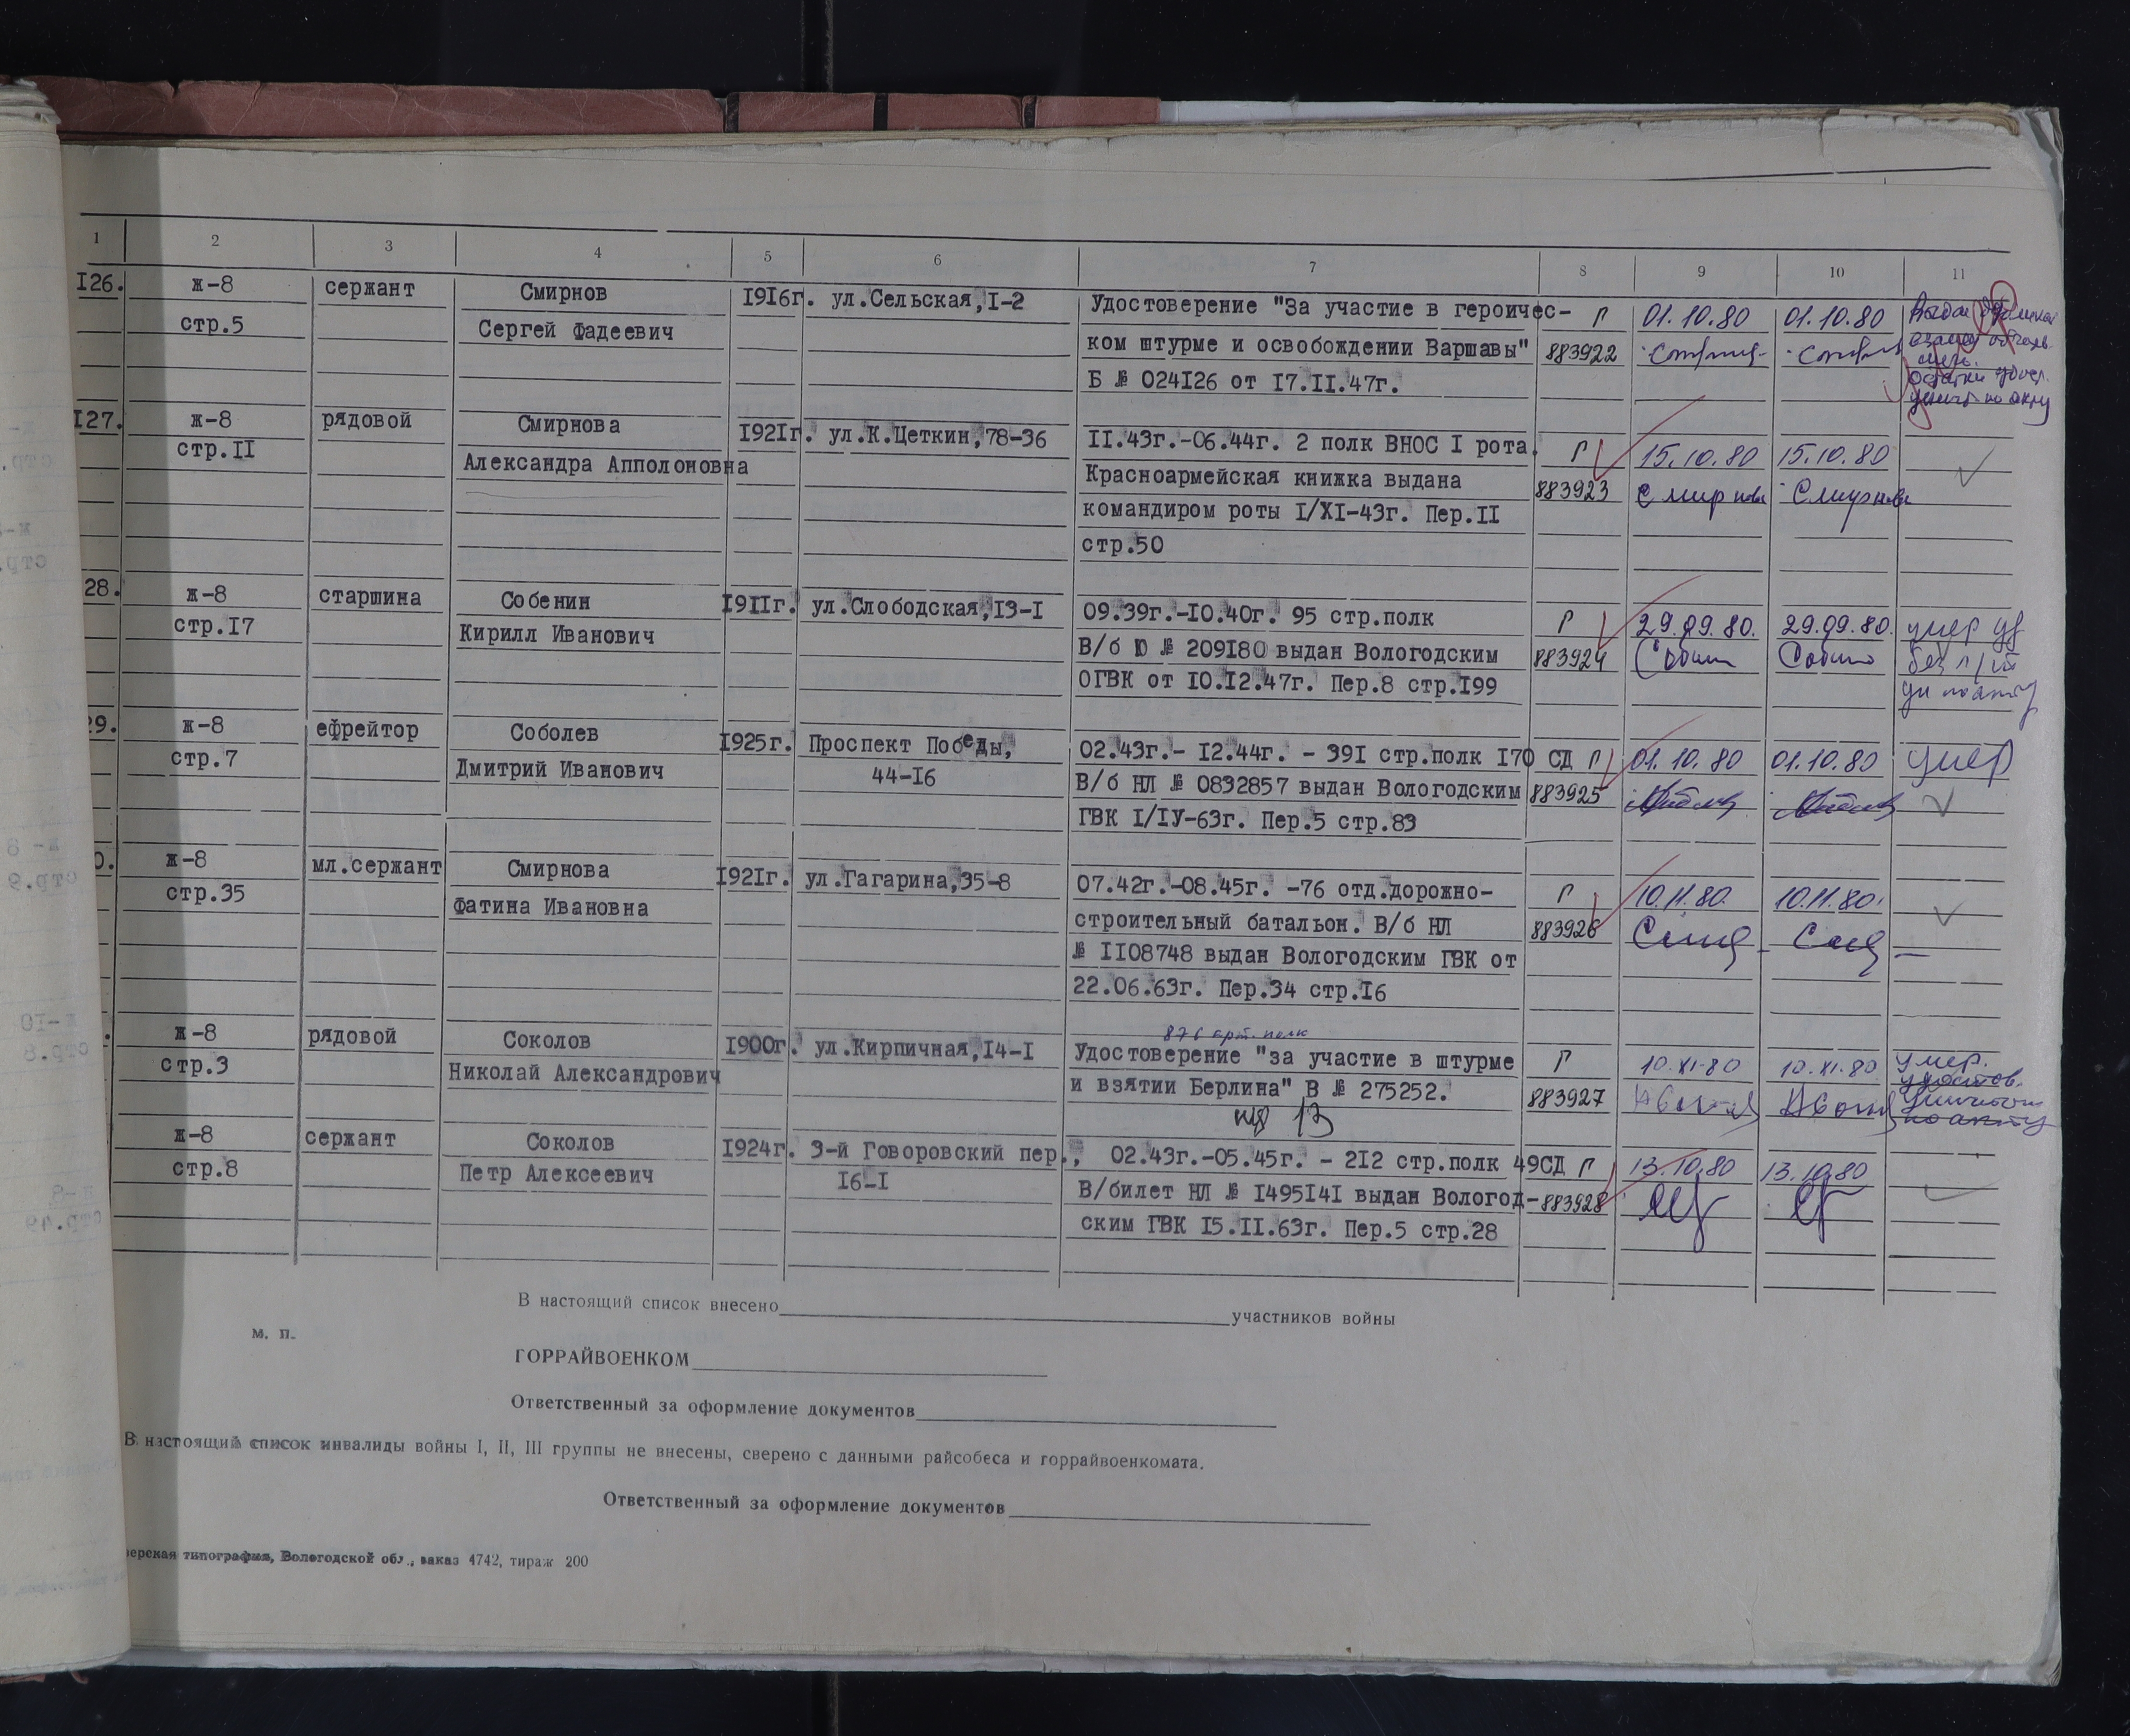 1 2 3 4 5 6 7 8 9 10 11
I26. ж-8 сержант Смирнов I9I6г. ул.Сельская,I-2 Удостоверение "За участие в героичес- Г 01.10.80 01.10.80
стр.5 Сергей Фадеевич ком штурме и освобождении Варшавы" 883922
Б № 024I26 от I7.II.47г.
I27. ж-8 рядовой Смирнова I92Iг. ул.К.Цеткин,78-36 II.43г.-06.44г. 2 полк ВНОС I рота. Г 15.10.80 15.10.80
стр.II Александра Апполоновна Красноармейская книжка выдана 883923 Смирнова Смирнова
командиром роты I/XI-43г. Пер.II
стр.50
28. ж-8 старшина Собенин I9IIг. ул.Слободская,I3-I 09.39г.-I0.40г. 95 стр.полк Г 29.09.80. 29.09.80. умер
стр.I7 Кирилл Иванович В/б Ю № 209I80 выдан Вологодским 883924
ОГВК от I0.I2.47г. Пер.8 стр.I99
29. ж-8 ефрейтор Соболев I925г. Проспект Победы, 02.43г.- I2.44г. - 39I стр.полк I70 СД Г 01.10.80 01.10.80 умер
стр.7 Дмитрий Иванович 44-I6 В/б НЛ № 0832857 выдан Вологодским 883925
ГВК I/IУ-63г. Пер.5 стр.83
0. ж-8 мл.сержант Смирнова I92Iг. ул.Гагарина,35-8 07.42г.-08.45г. -76 отд.дорожно- Г 10.11.80. 10.11.80.
стр.35 Фатина Ивановна строительный батальон. В/б НЛ 883926
№ II08748 выдан Вологодским ГВК от
22.06.63г. Пер.34 стр.I6
876 арт. полк
. ж-8 рядовой Соколов I900г. ул.Кирпичная,I4-I Удостоверение "за участие в штурме Г 10.XI.80 10.XI.80 умер.
стр.3 Николай Александрович и взятии Берлина" В № 275252. 883927
13
ж-8 сержант Соколов I924г. 3-й Говоровский пер., 02.43г.-05.45г. - 2I2 стр.полк 49СД Г 13.10.80 13.10.80
стр.8 Петр Алексеевич I6-I В/билет НЛ № I495I4I выдан Вологод- 883928
ским ГВК I5.II.63г. Пер.5 стр.28
В настоящий список внесено участников войны
м. п.
ГОРРАЙВОЕНКОМ
Ответственный за оформление документов
В настоящий список инвалиды войны I, II, III группы не внесены, сверено с данными райсобеса и горрайвоенкомата.
Ответственный за оформление документов
ерская типография, Вологодской обл., заказ 4742, тираж 200